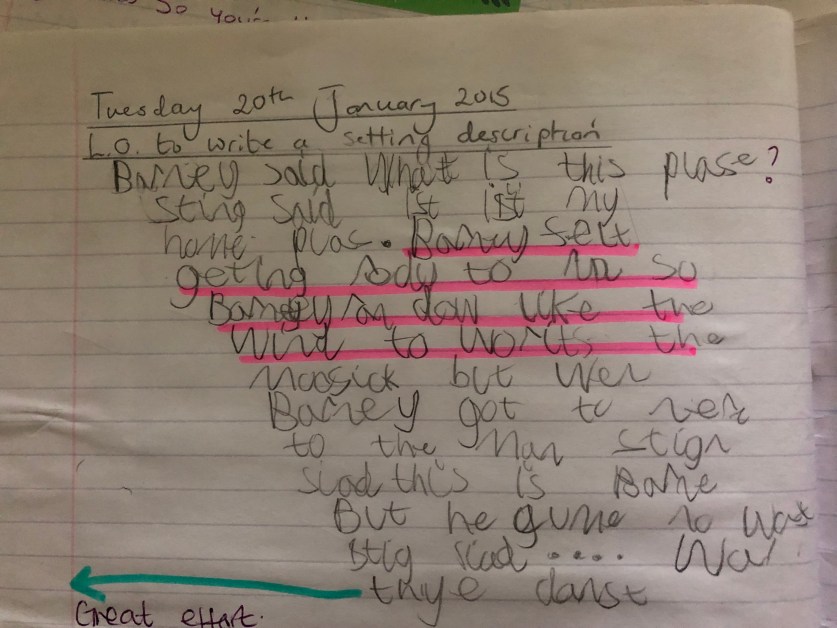 So you'r
Tuesday 20th January 2015
L.O. to write a setting description
Barney said What is this plase?
Sting said ist ist my
home plas. Barney selt
geting rody to run so
Barney ran dow like the
wind to words the
moosick but wen
Barney got to
to the man stign
siad this is Barne
But he gume no wat
stig siad .... Wai
thye danst
Great effort.